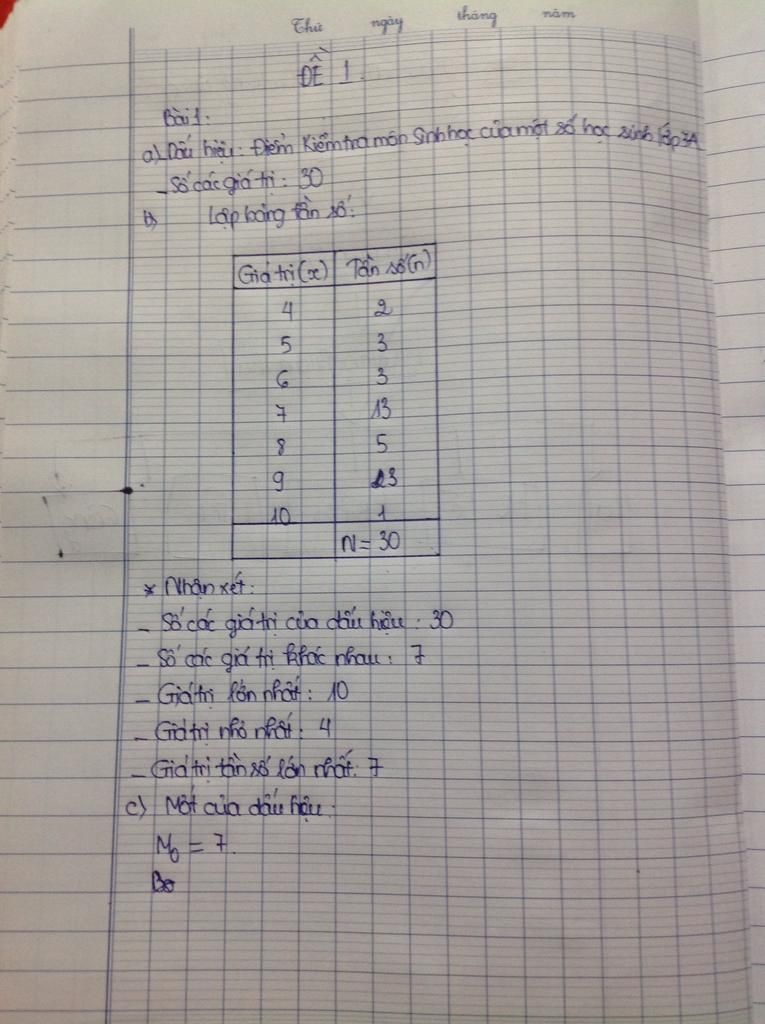 Thứ ngày tháng năm
ĐỀ 1.
Bài 1.
a) Dấu hiệu: Điểm Kiểm tra môn Sinh học của một số học sinh lớp 7A
- Số các giá trị: 30
b) Lập bảng tần số:
Giá trị (x) Tần số (n)
4 2
5 3
6 3
7 13
8 5
9 3
10 1
N = 30
* Nhận xét:
- Số các giá trị của dấu hiệu: 30
- Số các giá trị khác nhau: 7
- Giá trị lớn nhất: 10
- Giá trị nhỏ nhất: 4
- Giá trị tần số lớn nhất: 7
c) Mốt của dấu hiệu:
M₀ = 7.